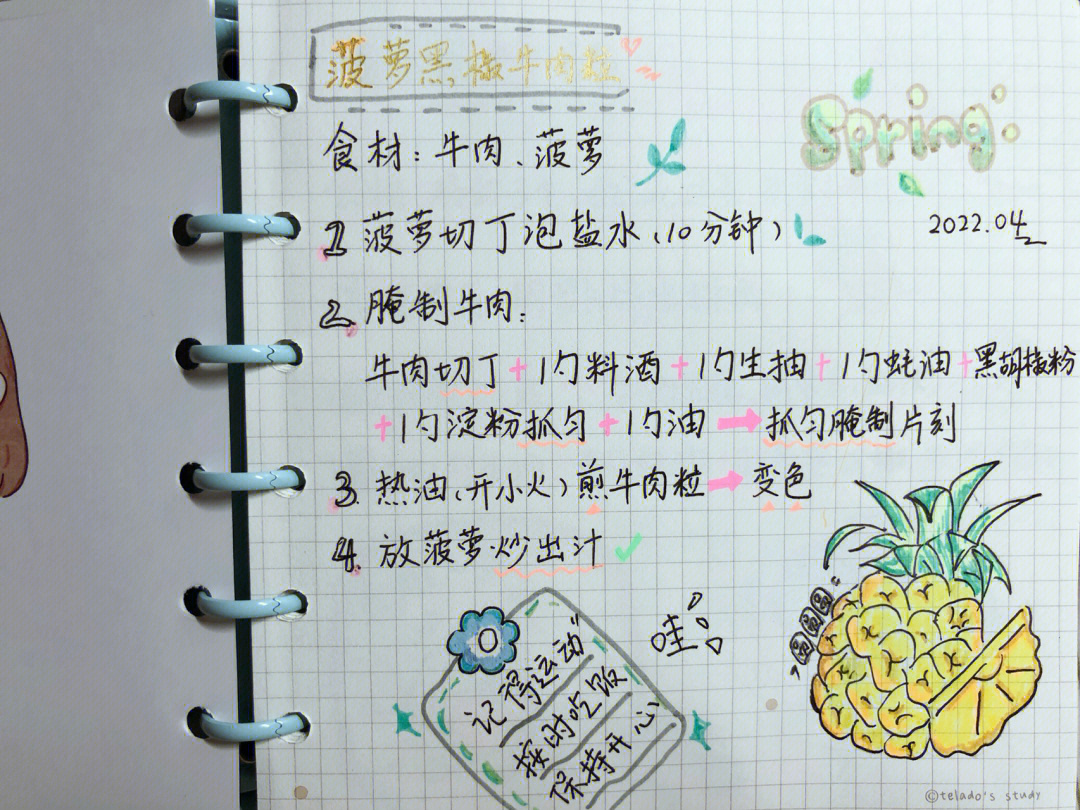 菠萝黑椒牛肉粒
Spring
食材：牛肉、菠萝
2022.04
1 菠萝切丁泡盐水（10分钟）
2. 腌制牛肉：
牛肉切丁+1勺料酒+1勺生抽+1勺蚝油+黑胡椒粉
+1勺淀粉抓匀+1勺油→抓匀腌制片刻
3. 热油（开小火）煎牛肉粒→变色
4. 放菠萝炒出汁✓
哇
记得运动
按时吃饭
保持开心
©telado's study